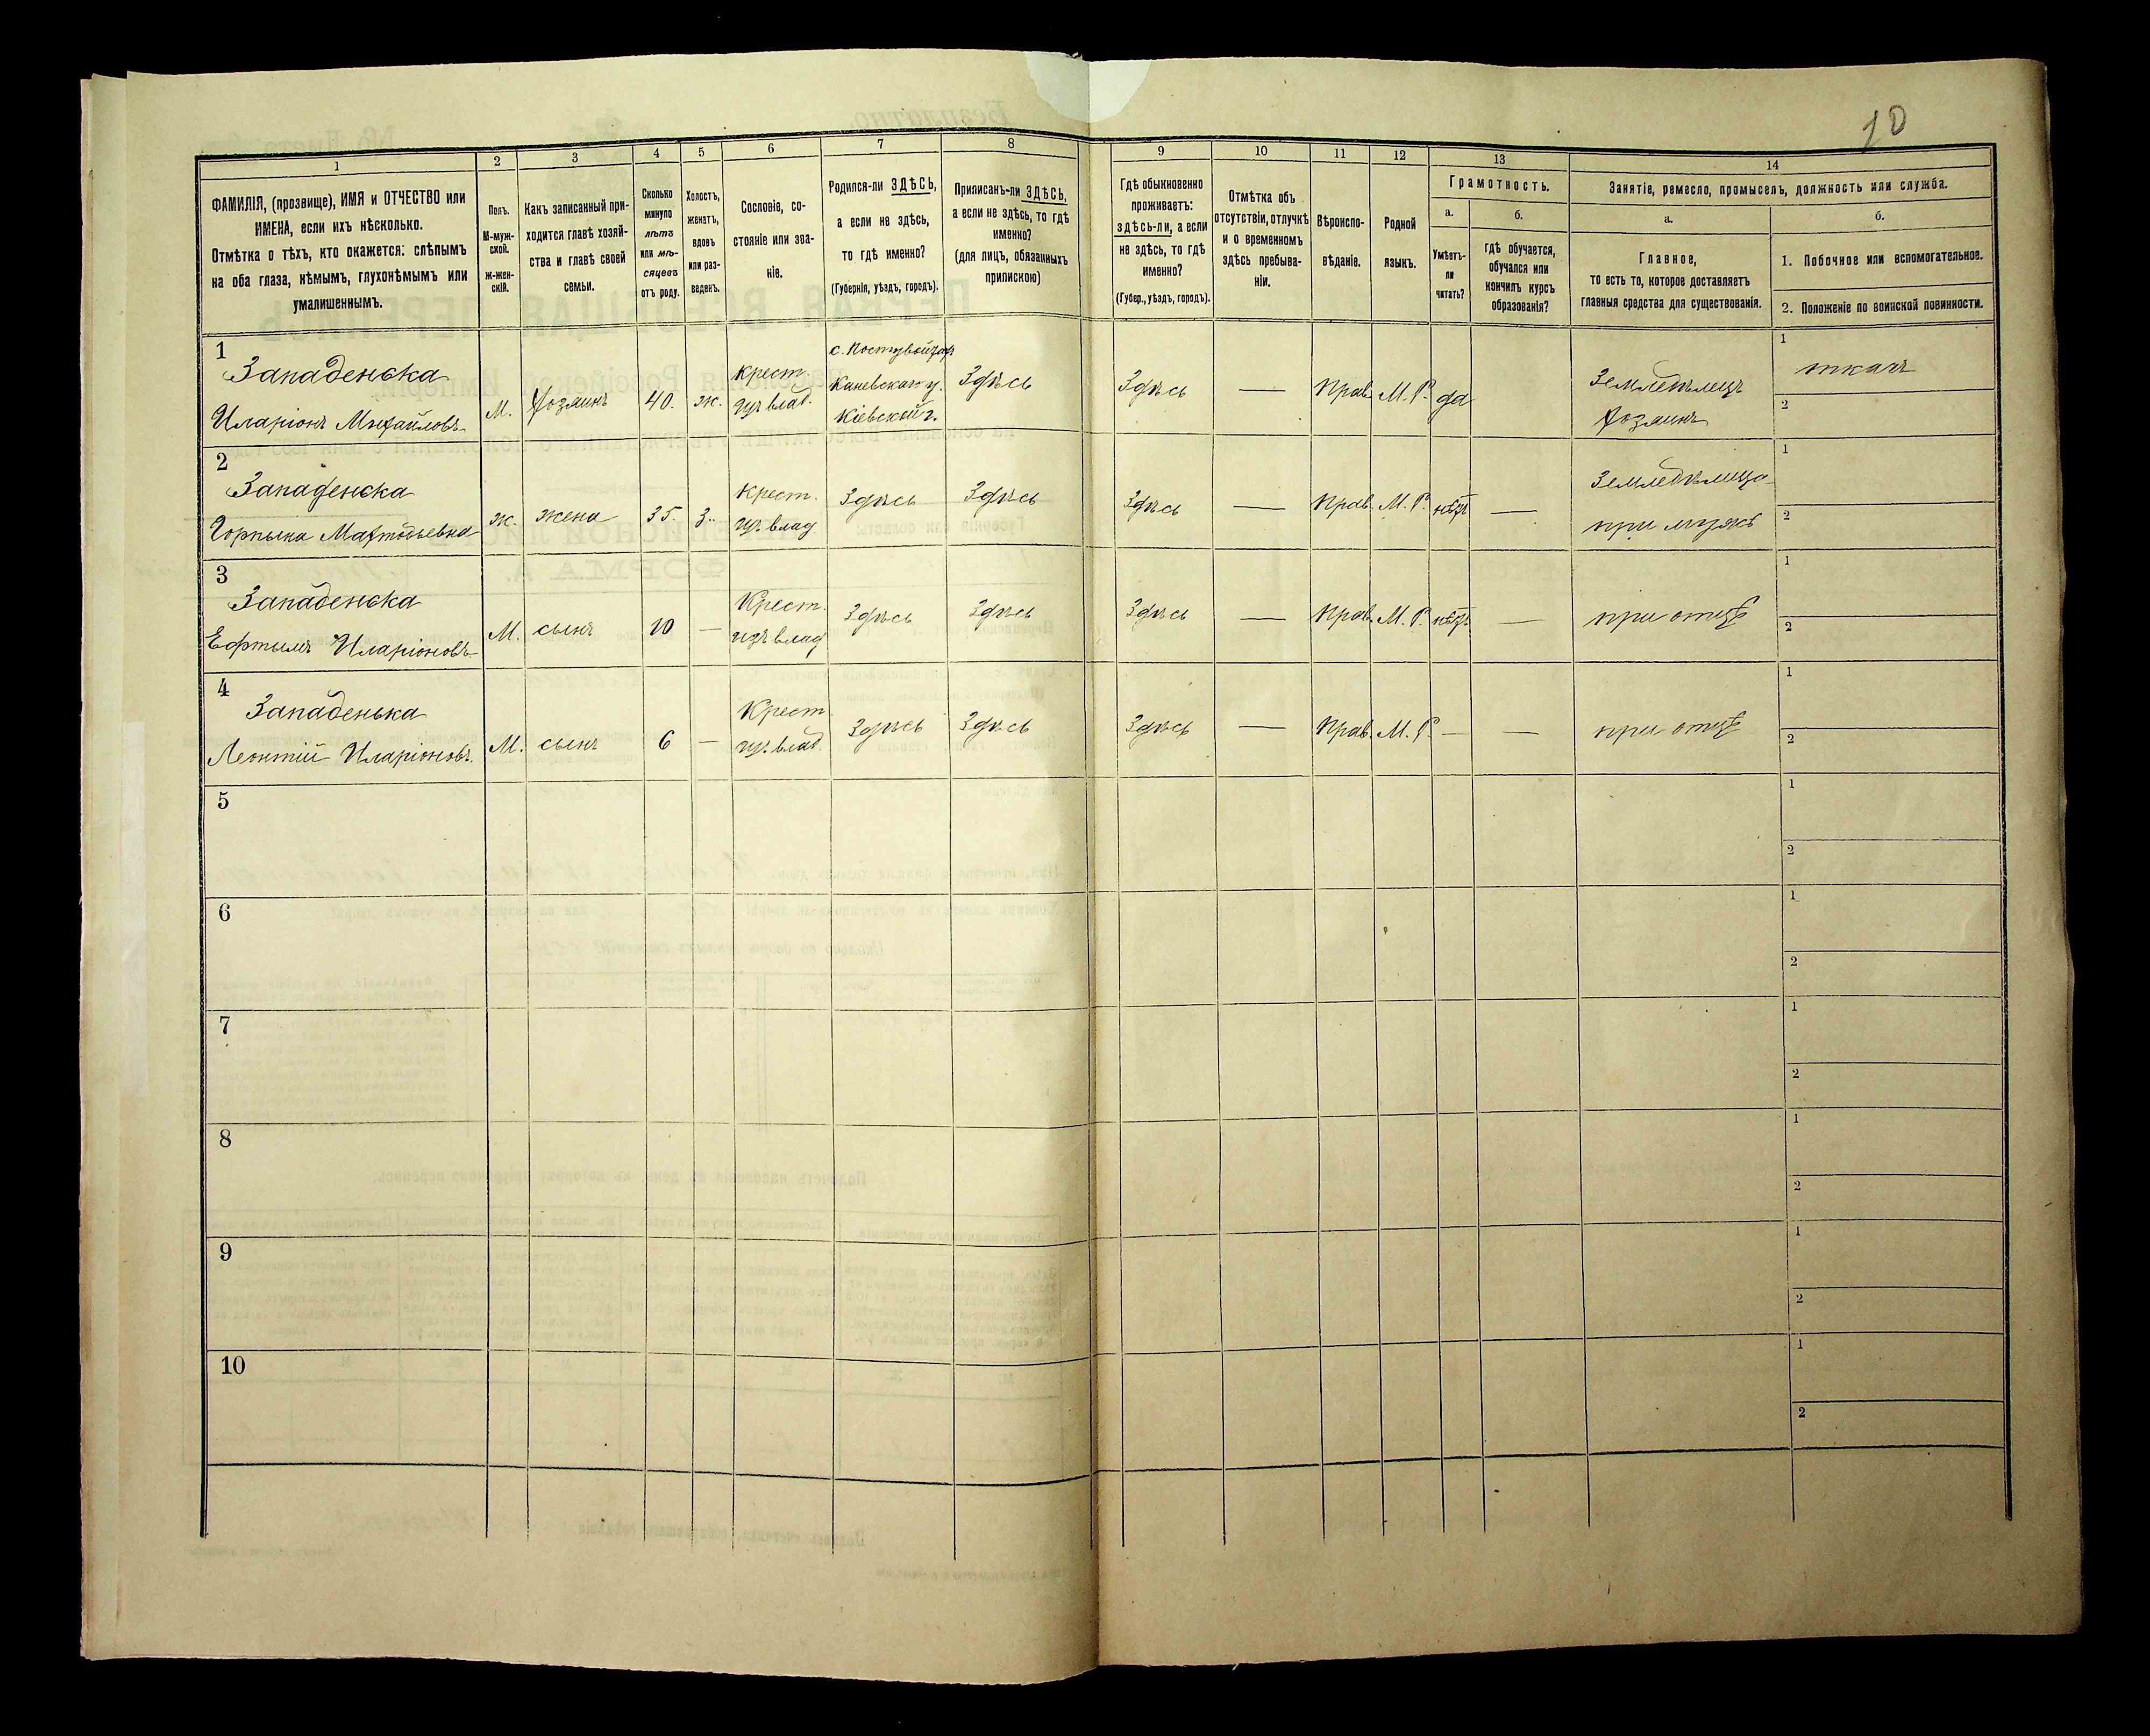 10
1 2 3 4 5 6 7 8 9 10 11 12 13 14
ФАМИЛІЯ, (прозвище), ИМЯ и ОТЧЕСТВО или
ИМЕНА, если ихъ нѣсколько.
Отмѣтка о тѣхъ, кто окажется: слѣпымъ
на оба глаза, нѣмымъ, глухонѣмымъ или
умалишеннымъ.
Полъ.
М-муж-
ской.
Ж-жен-
скій.
Какъ записанный при-
ходится главѣ хозяй-
ства и главѣ своей
семьи.
Сколько
минуло
лѣтъ
или мѣ-
сяцевъ
отъ роду.
Холостъ,
женатъ,
вдовъ
или раз-
веденъ.
Сословіе, со-
стояніе или зва-
ніе.
Родился-ли ЗДѢСЬ,
а если не здѣсь,
то гдѣ именно?
(Губернія, уѣздъ, городъ).
Приписанъ-ли ЗДѢСЬ,
а если не здѣсь, то гдѣ
именно?
(для лицъ, обязанныхъ
припискою)
Гдѣ обыкновенно
проживаетъ:
здѣсь-ли, а если
не здѣсь, то гдѣ
именно?
(Губер., уѣздъ, городъ).
Отмѣтка объ
отсутствіи, отлучкѣ
и о временномъ
здѣсь пребыва-
ніи.
Вѣроиспо-
вѣданіе.
Родной
языкъ.
Грамотность.
а.
Умѣетъ-
ли
читать?
б.
гдѣ обучается,
обучался или
кончилъ курсъ
образованія?
Занятіе, ремесло, промыселъ, должность или служба.
а.
Главное,
то есть то, которое доставляетъ
главныя средства для существованія.
б.
1. Побочное или вспомогательное.
2. Положеніе по воинской повинности.
1
Западенська
Иларіонъ Михайловъ
М.
Хозяинъ
40.
ж.
крест.
изъ влад.
Каневскаго у.
Кіевской г.
Здѣсь
Здѣсь
—
Прав.
М. Р.
да
Земледѣлецъ
Хозяинъ
1
ткачъ
2
2
Западенска
Горпына Мафтодьевна
ж.
жена
35
з.
крест.
изъ влад
Здѣсь
Здѣсь
Здѣсь
—
Прав.
М. Р.
нѣтъ
—
Земледѣлица
при мужѣ
1
2
3
Западенска
Ефтымъ Иларіоновъ
М.
сынъ
10
—
Крест.
изъ влад
Здѣсь
Здѣсь
Здѣсь
—
Прав.
М. Р.
нѣтъ
—
при отцѣ
1
2
4
Западенька
Леонтій Иларіоновъ.
М.
сынъ
6
—
Крест
изъ влад.
Здѣсь
Здѣсь
Здѣсь
—
Прав.
М. Р.
—
—
при отцѣ
1
2
5
1
2
6
1
2
7
1
2
8
1
2
9
1
2
10
1
2